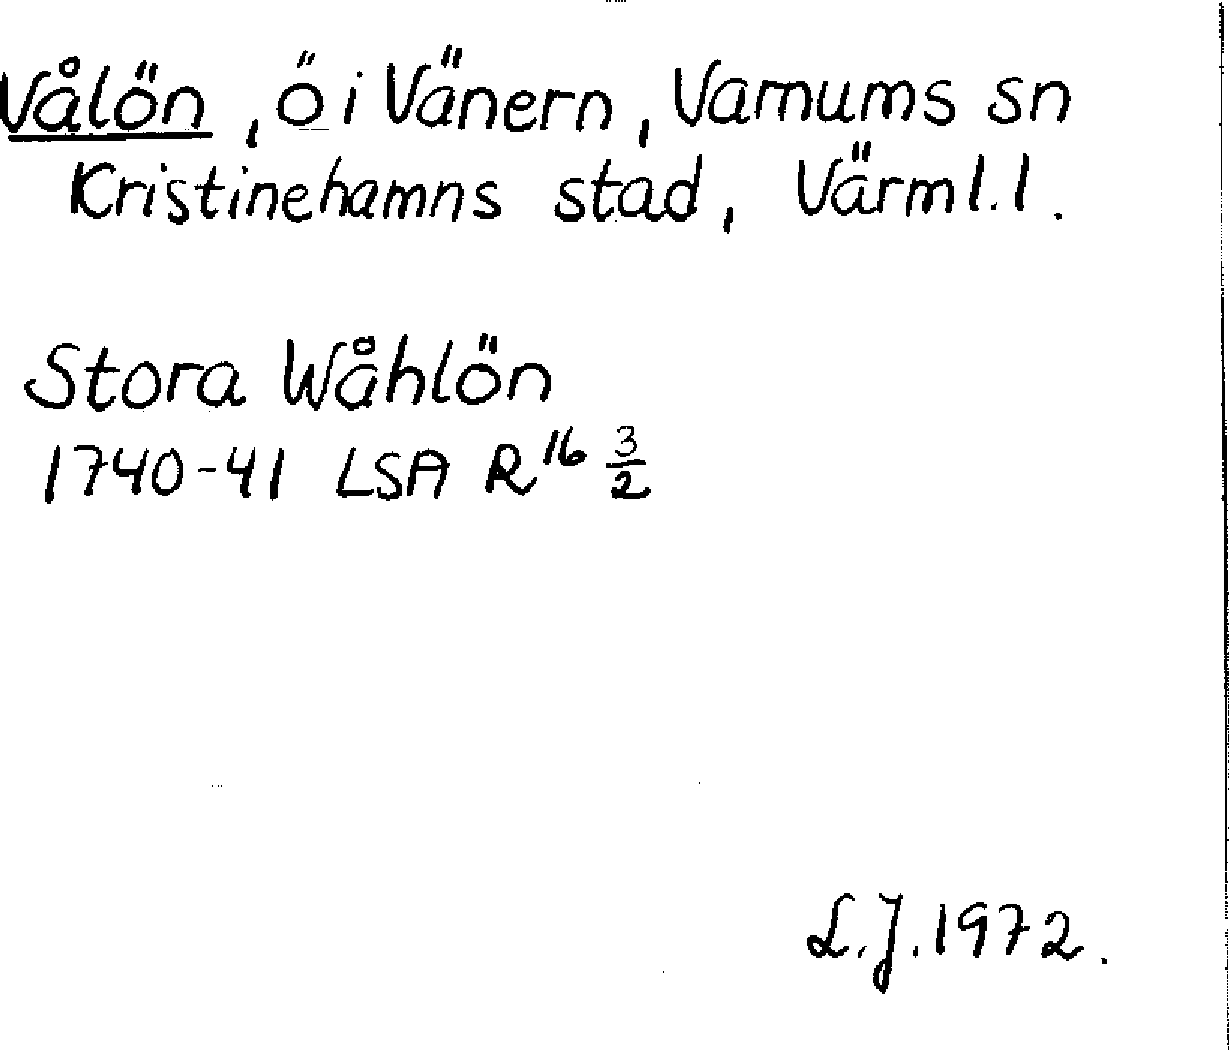 Vålön, ö i Vänern, Varnums sn
Kristinehamns stad, Värml. l.
Stora Wåhlön
1740-41 LSA R¹⁶ 3/2
L.J. 1972.